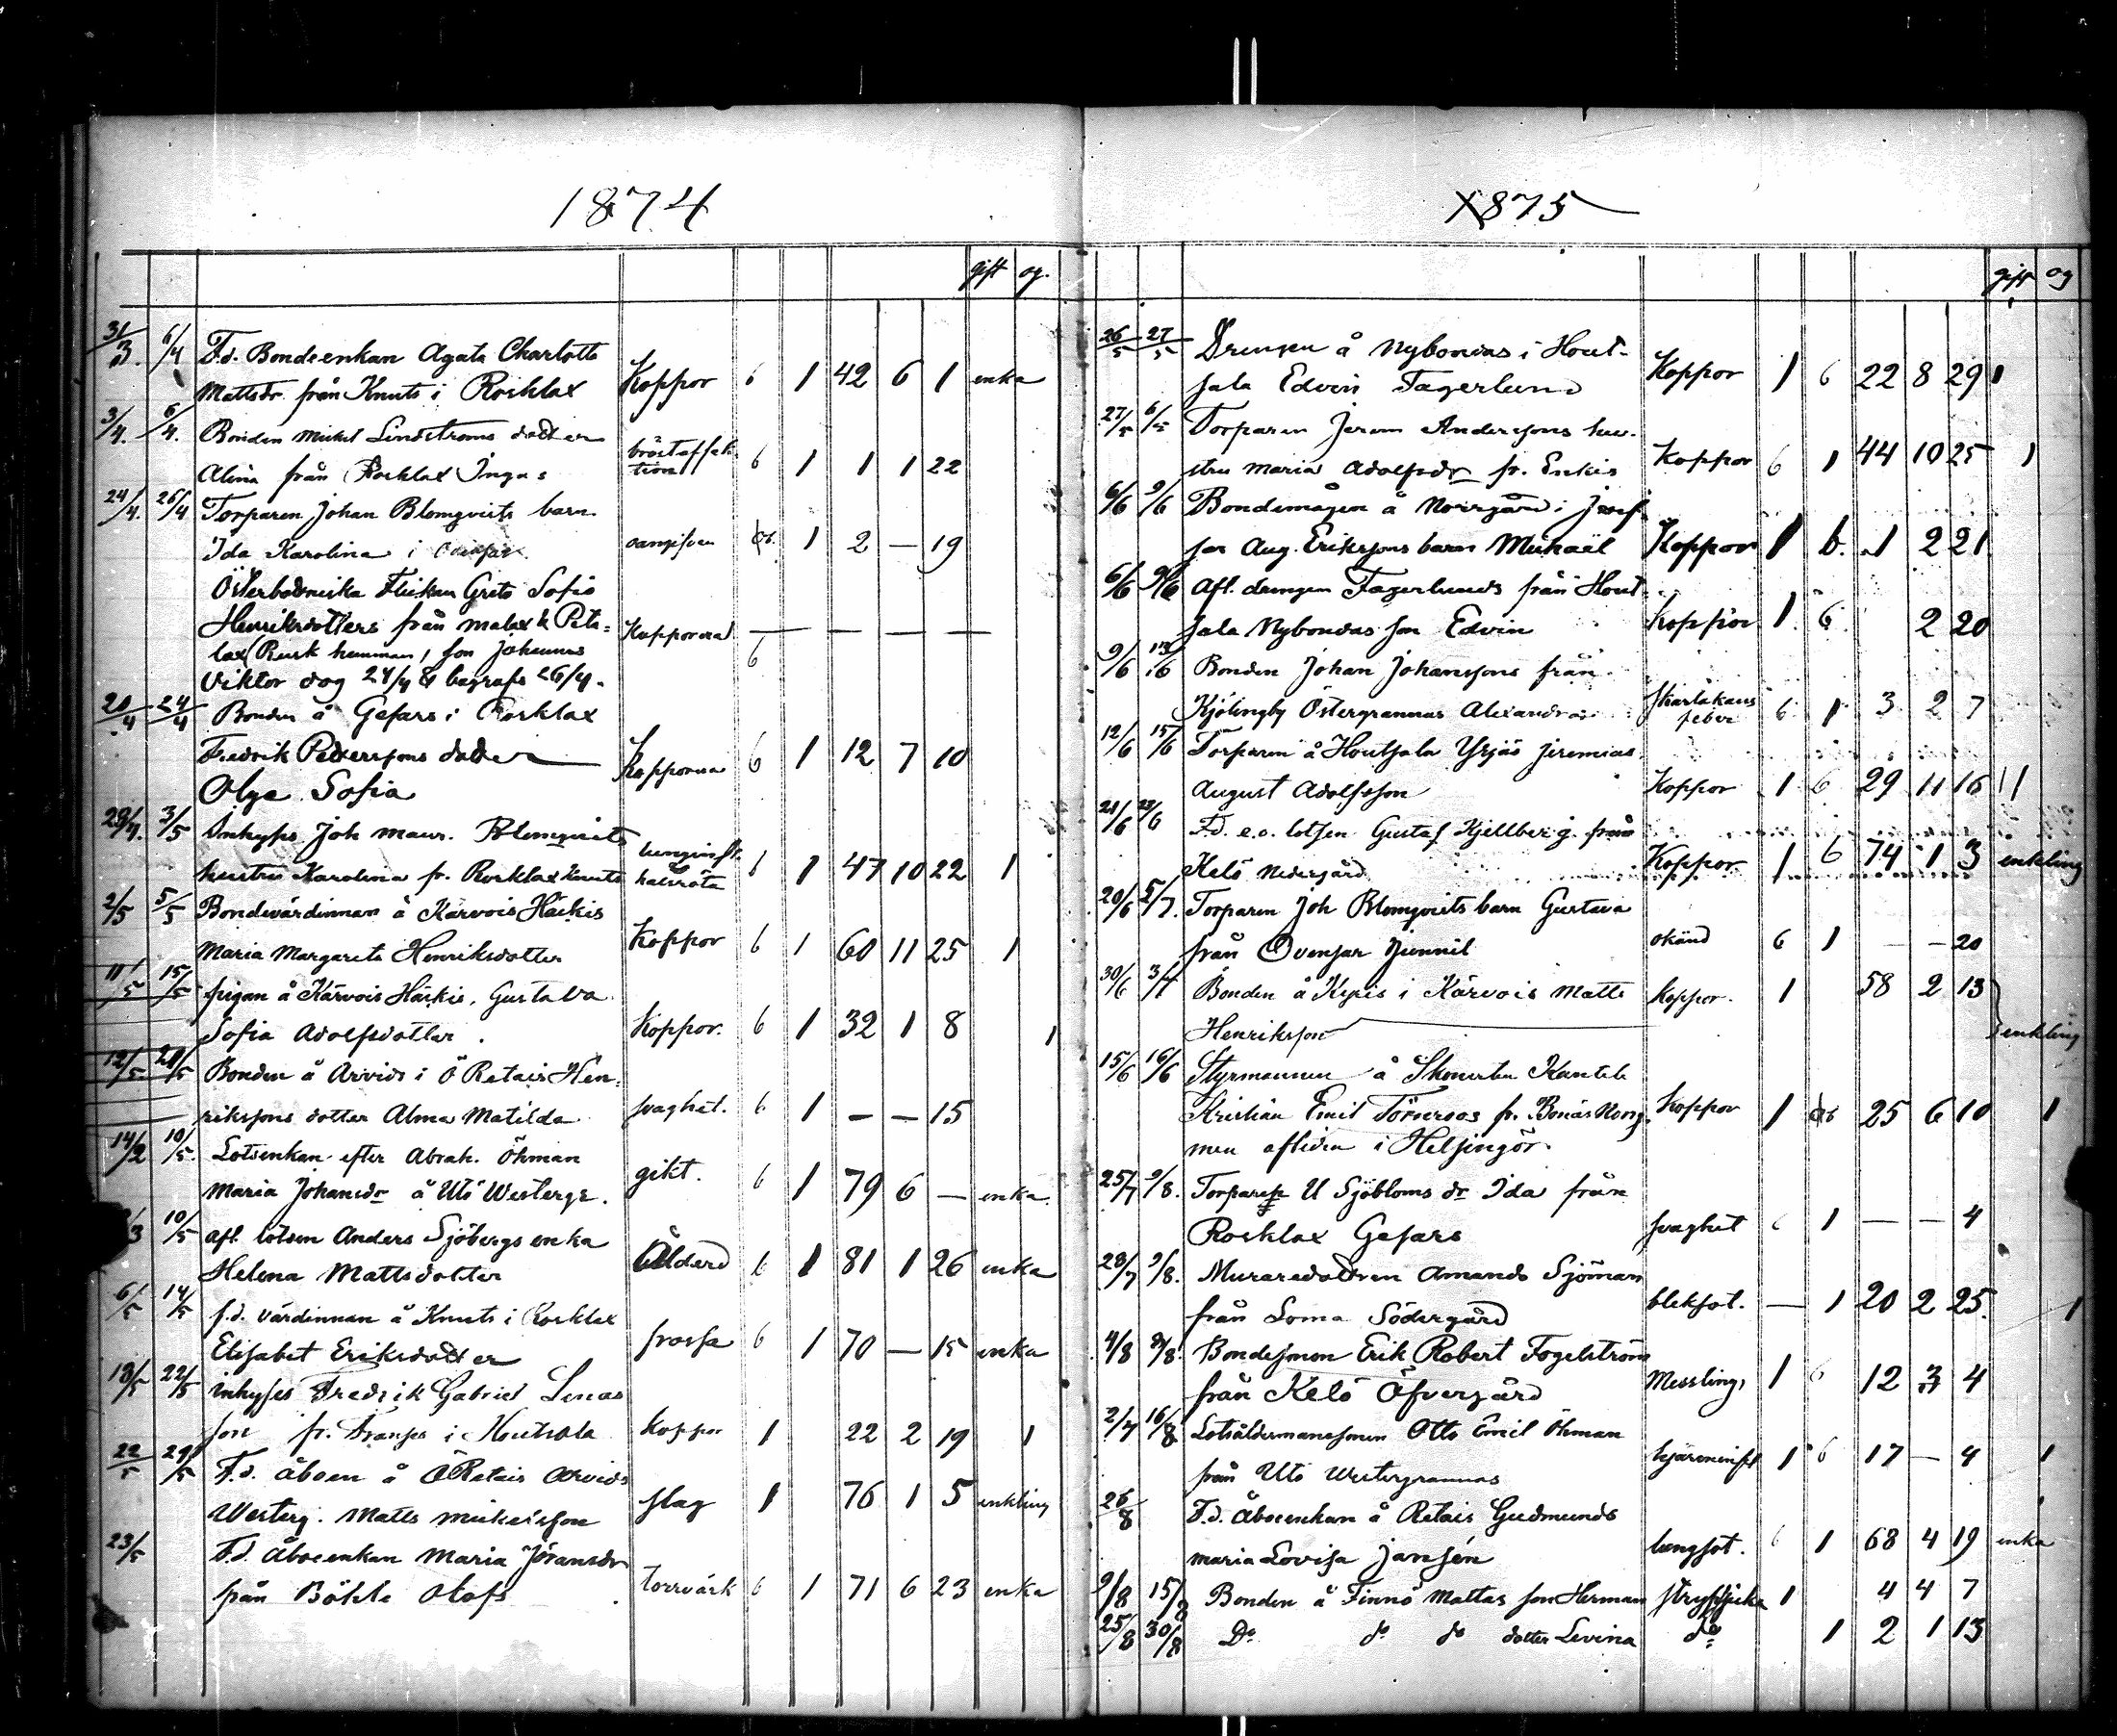 1874
gift og.
31/3. 6/4 F.d. Bondeenkan Agata Charlotta
Mattsdr. från Knuts i Rosklax Koppor 6 1 42 6 1 enka
3/4. 6/4. Bonden Mickel Lindströms dotter
Alina från Rosklax Ingas bröstaffektion 6 1 1 1 22
24/4. 26/4 Torparen Johan Blomqvists barn
Ida Karolina i 1 2 — 19
Österbottniska Flickan Greta Sofia
Henriksdotters från Malax k Peta=
lax Rusk hemman, son Johannes Kopporna — — — —
Viktor dog 24/4 & begrafs 26/4. 6
20/4 24/4 Bonden å Gefars i Rosklax
Fredrik Petterssons dotter Kopporna 6 1 12 7 10
Olga Sofia
29/4. 3/5 Inhyses Joh Maur. Blomqvists
hustru Karolina fr. Rosklax Knuts lunginfl. halsröta 6 1 47 10 22 1
2/5 5/5 Bondevärdinnan å Kärvois Häckis
Maria Margareta Henriksdotter Koppor 6 1 60 11 25 1
11/5 15/5 pigan å Kärvois Häckis, Gustava
Sofia Adolfsdotter. Koppor. 6 1 32 1 8 1
12/5 20/5 Bonden å Arvids i Ö Retais Hen=
rikssons dotter Alma Matilda svaghet. 6 1 — — 15
14/2 10/5. Lotsenkan efter Abrah. Öhman
Maria Johansdr å Utö Westergr. gikt. 6 1 79 6 — enka
/3 10/5 afl. lotsen Anders Sjöbergs enka
Helena Mattsdotter Ålderd 6 1 81 1 26 enka
6/5 14/5 f.d. värdinnan å Knuts i Rosklax
Elisabet Eriksdotter frossa 6 1 70 — 15 enka
18/5 22/5 inhyses Fredrik Gabriel Linas
son fr. i Houtsala koppor 1 22 2 19 1
22/5 29/5 F.d. åboen å Ö Retais Arvids
Westerg. Matts Mickelsson slag 1 76 1 5 enkling
23/5 F.d. Åboenkan Maria Jöransdr
från Böhle Olofs torrvärk 6 1 71 6 23 enka
1875
gift og
26/5 27/5 Drengen å Nybondas i Hout-
sala Edvin Fagerlund Koppor 1 6 22 8 29 1
27/5 6/5 Torparen Jerem Anderssons hu-
stru Maria Adolfsdr fr. Enkis Koppor 6 1 44 10 25 1
6/6 9/6 Bondemågen å Norrgård i
Aug. Erikssons barn Mickaël Koppor 1 6. 1 2 21
6/6 9/6 Afl. drengen Fagerlunds från Hout
sala Nybondas son Edvin Koppor 1 6 2 20
9/6 13/6 Bonden Johan Johanssons från
Kjölingby Östergrannas Alexandra Skarlakans feber 6 1 3 2 7
12/6 15/6 Torparen å Houtsala Yrjäs Jeremias
August Adolfsson Koppor 1 6 29 11 16 1
21/6 27/6 F.d. e.o. lotsen Gustaf Kjellberg från
Kelö Nedergård Koppor 1 6 74 1 3 enkling
20/6 5/7. Torparen Joh Blomqvists barn Gustava
från Ovensar Junnil okänd 6 1 — — 20
30/6 3/7 Bonden å Kexis i Kärvois Matts koppor. 1 58 2 13
Henriksson enkling
15/6 16/6 Styrmannen å Skonerten Kantele
Kristian Emil Törnroos fr. Benäs Norrg. Koppor 1 25 6 10 1
men afliden i Helsingör.
25/7 9/8. Torparen U Sjöbloms dr Ida från
Rosklax Gefars svaghet 6 1 — — 4
28/7 9/8. Muraredottren Amanda Sjöman
från Loma Södergård bleksot. — 1 20 2 25. 1
4/8 9/8. Bondesonen Erik Robert Fogelström
från Kelö Öfvergård Messling, 1 6 12 3 4
2/7 16/8 Lotsåldermanssonen Otto Emil Öhman
från Utö Westergrannas hjärninfl 1 6 17 — 4 1
26/8 F.d. Åboenkan å Retais Gudmunds
Maria Lovisa Jansén lungsot. 6 1 68 4 19 enka
9/8 15/8 Bonden å Finnö Mattas son Herman strypsjuka 1 4 4 7
25/8 30/8 Do do do dotter Levina do 1 2 1 13